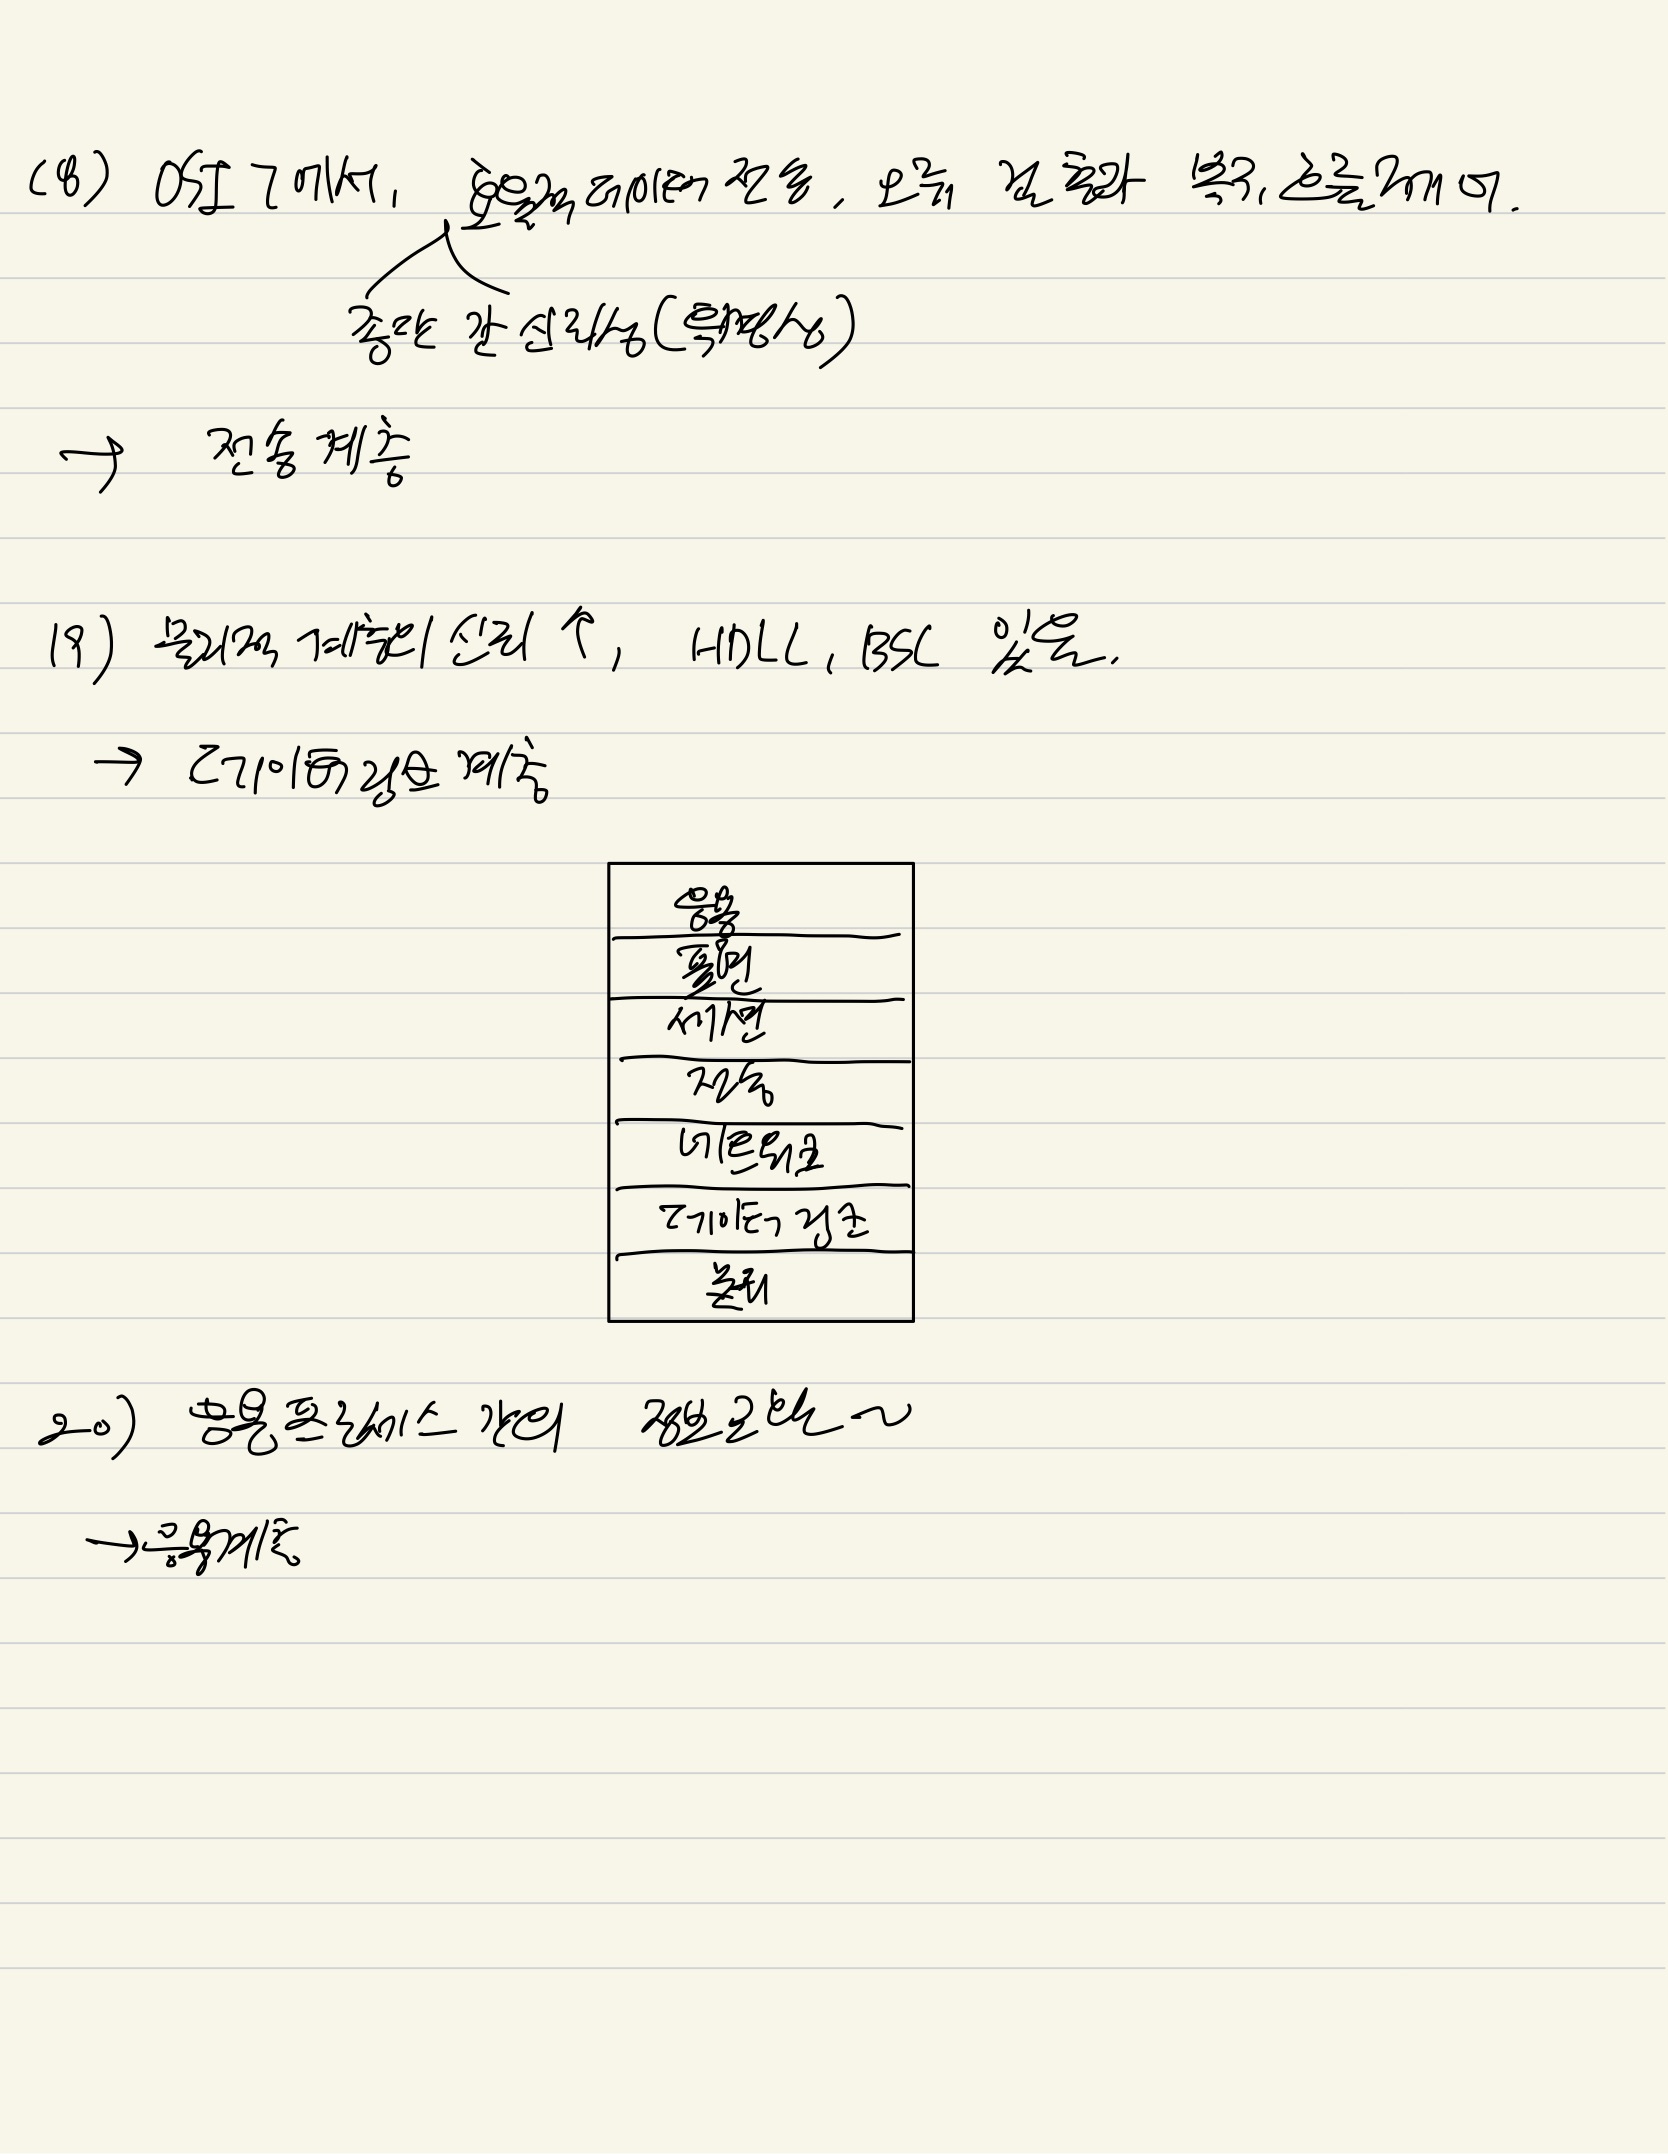 18) OSI 7에서, 효율적 데이터 전송, 오류 검출과 복구, 흐름제어.
종단 간 신뢰성(투명성)
→ 전송 계층
19) 물리적 계층의 신뢰 ↑, HDLC, BSC 있음.
→ 데이터링크 계층
응용
표현
세션
전송
네트워크
데이터 링크
물리
20) 응용프로세스 간의 정보교환~
→응용계층